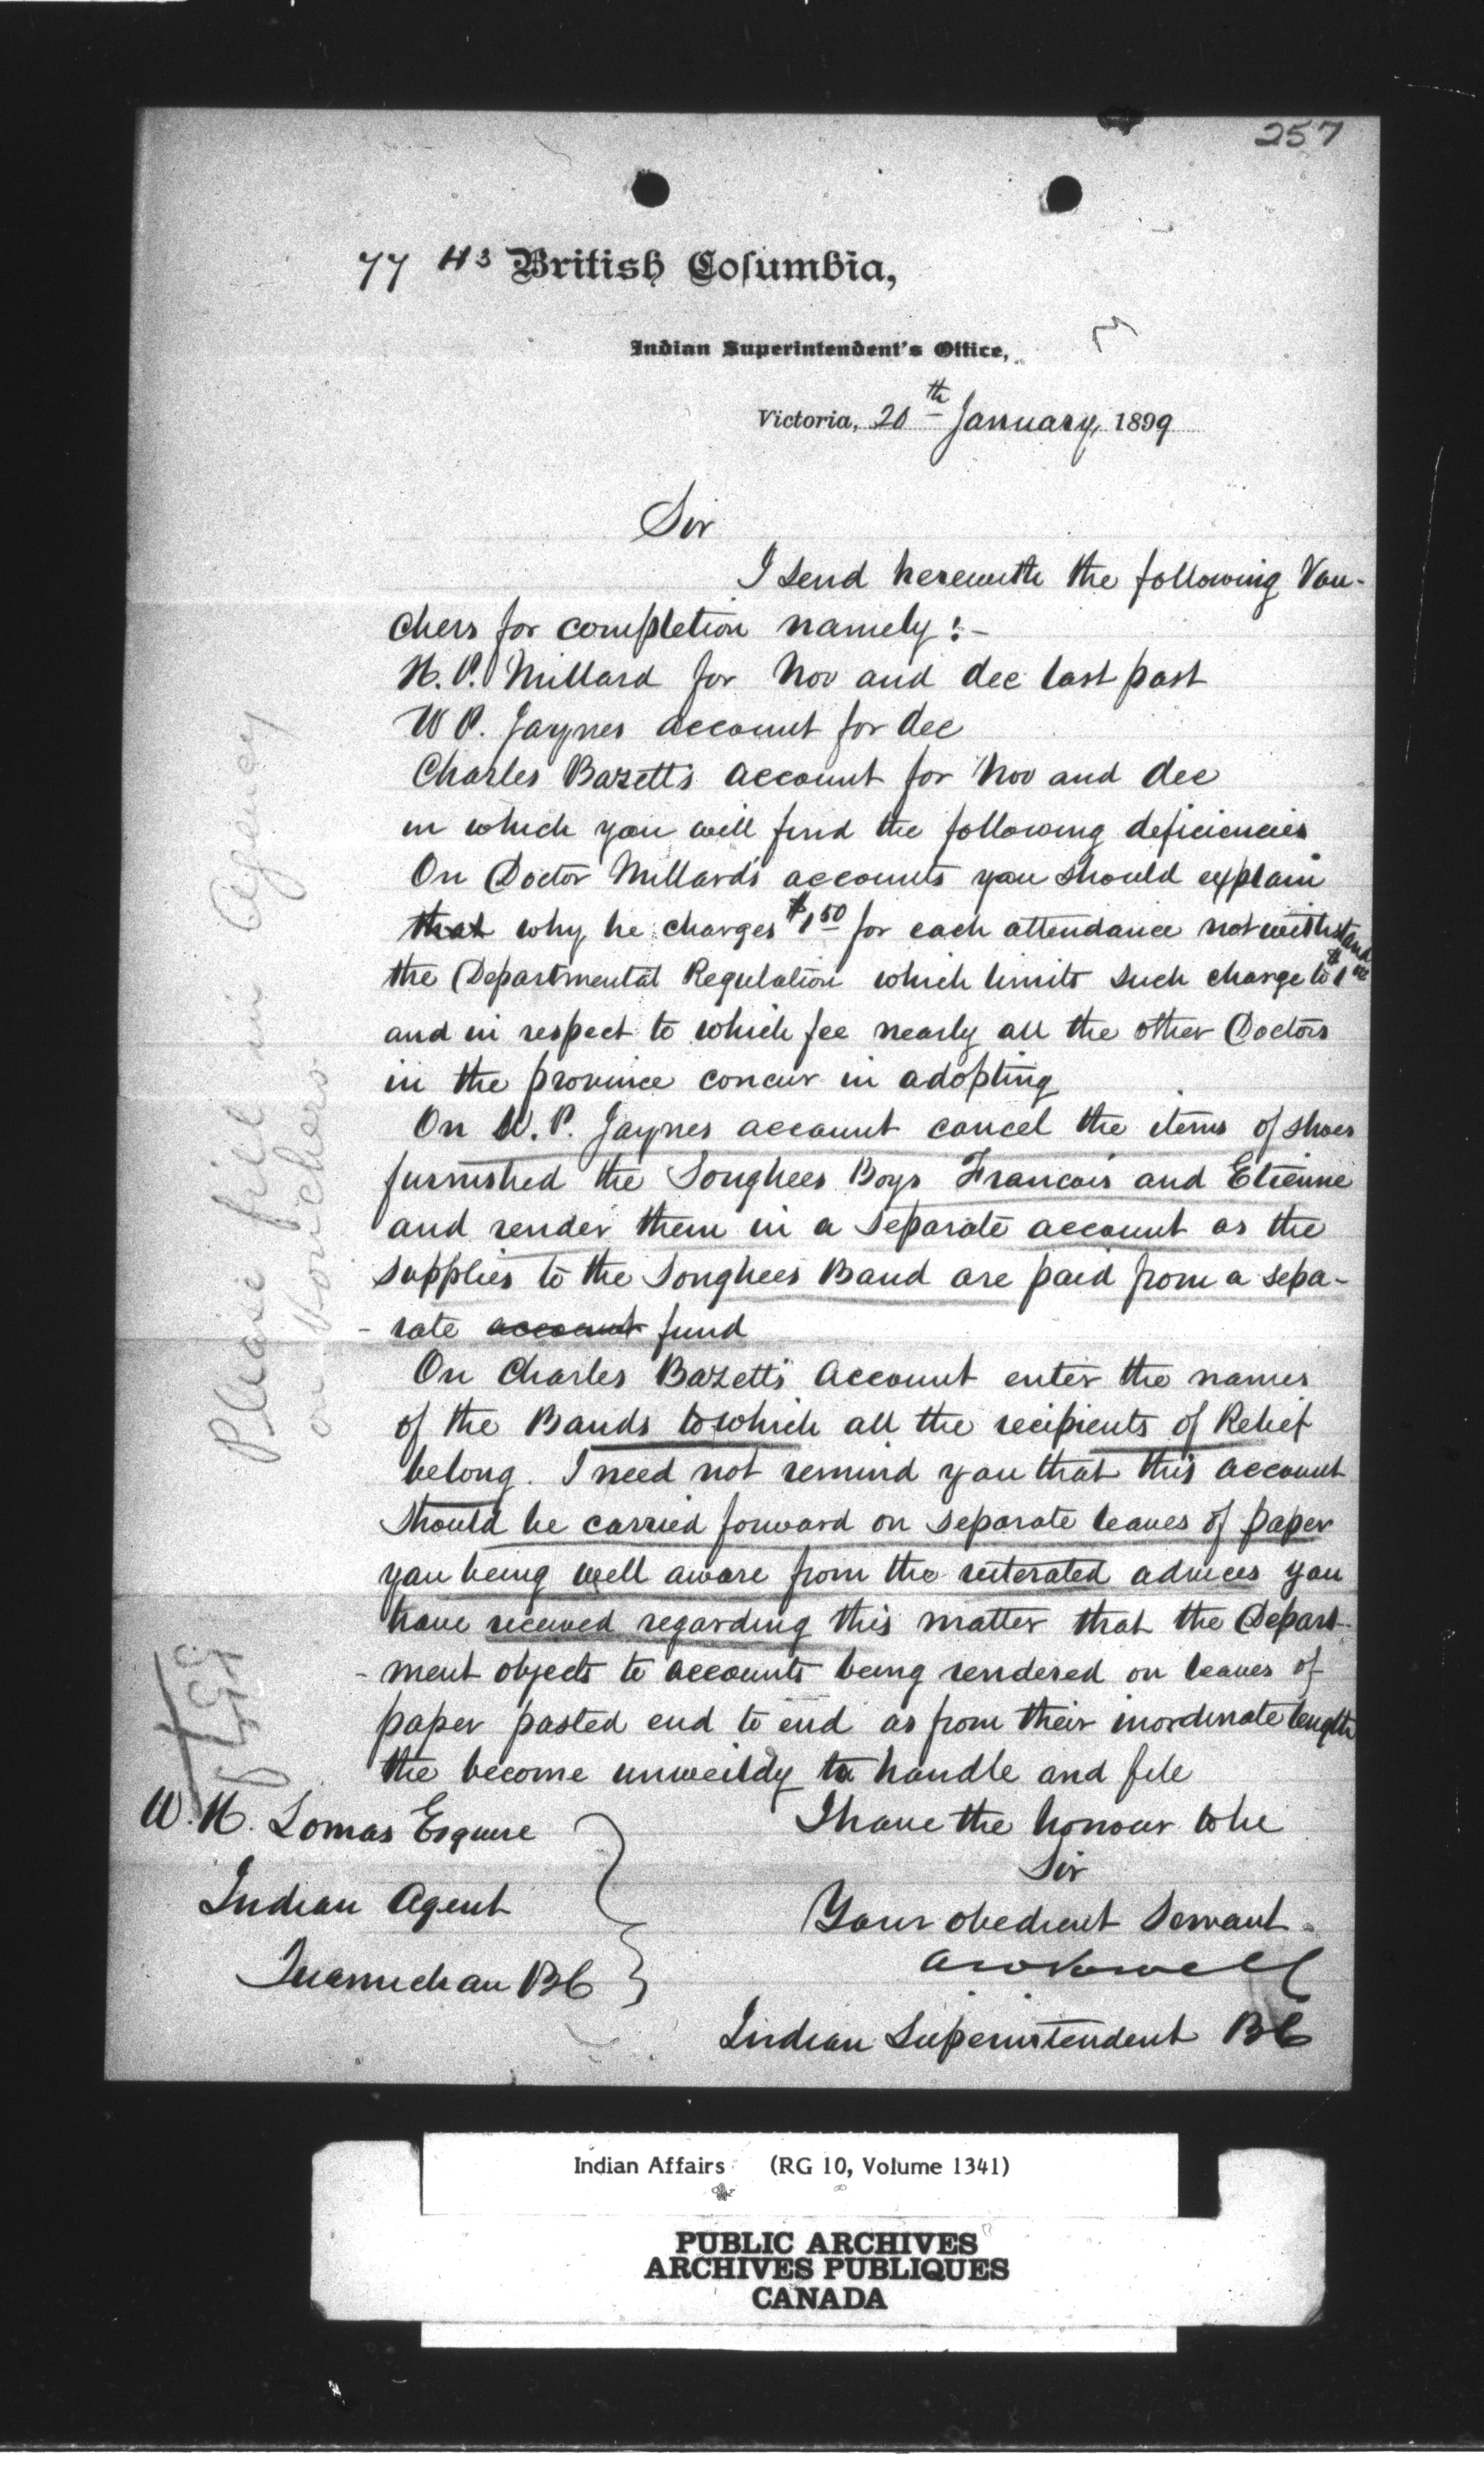 257
77 H3 British Columbia,
Indian Superintendent's Office,
Victoria, 20th January, 1899
Sir
I send herewith the following Vou-
chers for completion namely :-
H. P. Millard for Nov and dec last past
W P. Jaynes account for dec
Charles Bazett's account for Nov and dec
in which you will find the following deficiencies
On Doctor Millard's accounts you should explain
that why he charges $1 50 for each attendance notwithstand
the Departmental Regulation which limits such charge to $1 00
and in respect to which fee nearly all the other Doctors
in the province concur in adopting
On W. P. Jaynes account cancel the items of shoes
furnished the Songhees Boys Francois and Etienne
and render them in a separate account as the
supplies to the Songhees Band are paid from a sepa-
- rate account fund
On Charles Bazett's Account enter the names
of the Bands to which all the recipients of Relief
belong. I need not remind you that this account
should be carried forward on separate leaves of paper
you being well aware from the reiterated advices you
have received regarding this matter that the Depart-
- ment objects to accounts being rendered on leaves of
paper pasted end to end as from their inordinate length
the become unweildy to handle and file
I have the honour to be
Sir
Your obedient Servant
A W Vowell
Indian Superintendent BC
W. H. Lomas Esquire
Indian Agent
Quamichan BC
Please fill in Agency
on Vouchers
Indian Affairs (RG 10, Volume 1341)
PUBLIC ARCHIVES
ARCHIVES PUBLIQUES
CANADA